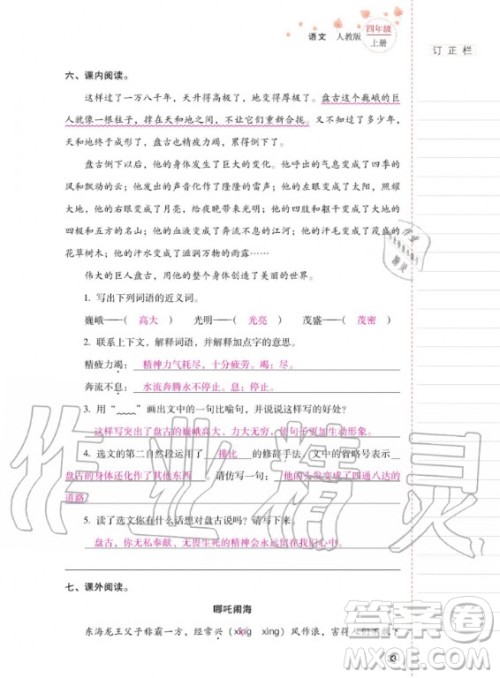 语文 人教版 四年级
上册
订正栏
六、课内阅读。
这样过了一万八千年，天升得高极了，地变得厚极了。盘古这个巍峨的巨
人就像一根柱子，撑在天和地之间，不让它们重新合拢。又不知过了多少年，
天和地终于成形了，盘古也精疲力竭，累得倒下了。
盘古倒下以后，他的身体发生了巨大的变化。他呼出的气息变成了四季的
风和飘动的云；他发出的声音化作了隆隆的雷声；他的左眼变成了太阳，照耀
大地；他的右眼变成了月亮，给夜晚带来光明；他的四肢和躯干变成了大地的
四极和五方的名山；他的血液变成了奔流不息的江河；他的汗毛变成了茂盛的
花草树木；他的汗水变成了滋润万物的雨露……
伟大的巨人盘古，用他的整个身体创造了美丽的世界。
1. 写出下列词语的近义词。
巍峨——（ 高大 ） 光明——（ 光亮 ） 茂盛——（ 茂密 ）
2. 联系上下文，解释词语，并解释加点字的意思。
精疲力竭：精神力气耗尽，十分疲劳。竭：尽。
奔流不息：水流奔腾永不停止。息：停止。
3. 用“﹏﹏”画出文中的一句比喻句，并说说这样写的好处？
这样写突出了盘古的巍峨高大、力大无穷，使句子更加生动形象。
4. 选文的第二自然段运用了 排比 的修辞手法，文中的省略号表示
盘古的身体还化作了其他东西 。请仿写一句：他的 变成了四通八达的
道路
5. 读了选文你有什么话想对盘古说吗？请写下来。
盘古，你无私奉献、无畏生死的精神会永远留在我们心中。
七、课外阅读。
哪吒闹海
东海龙王父子称霸一方，经常兴（xīng xìng）风作浪，害得人们不
作业精灵
答案圈
MXQE.COM